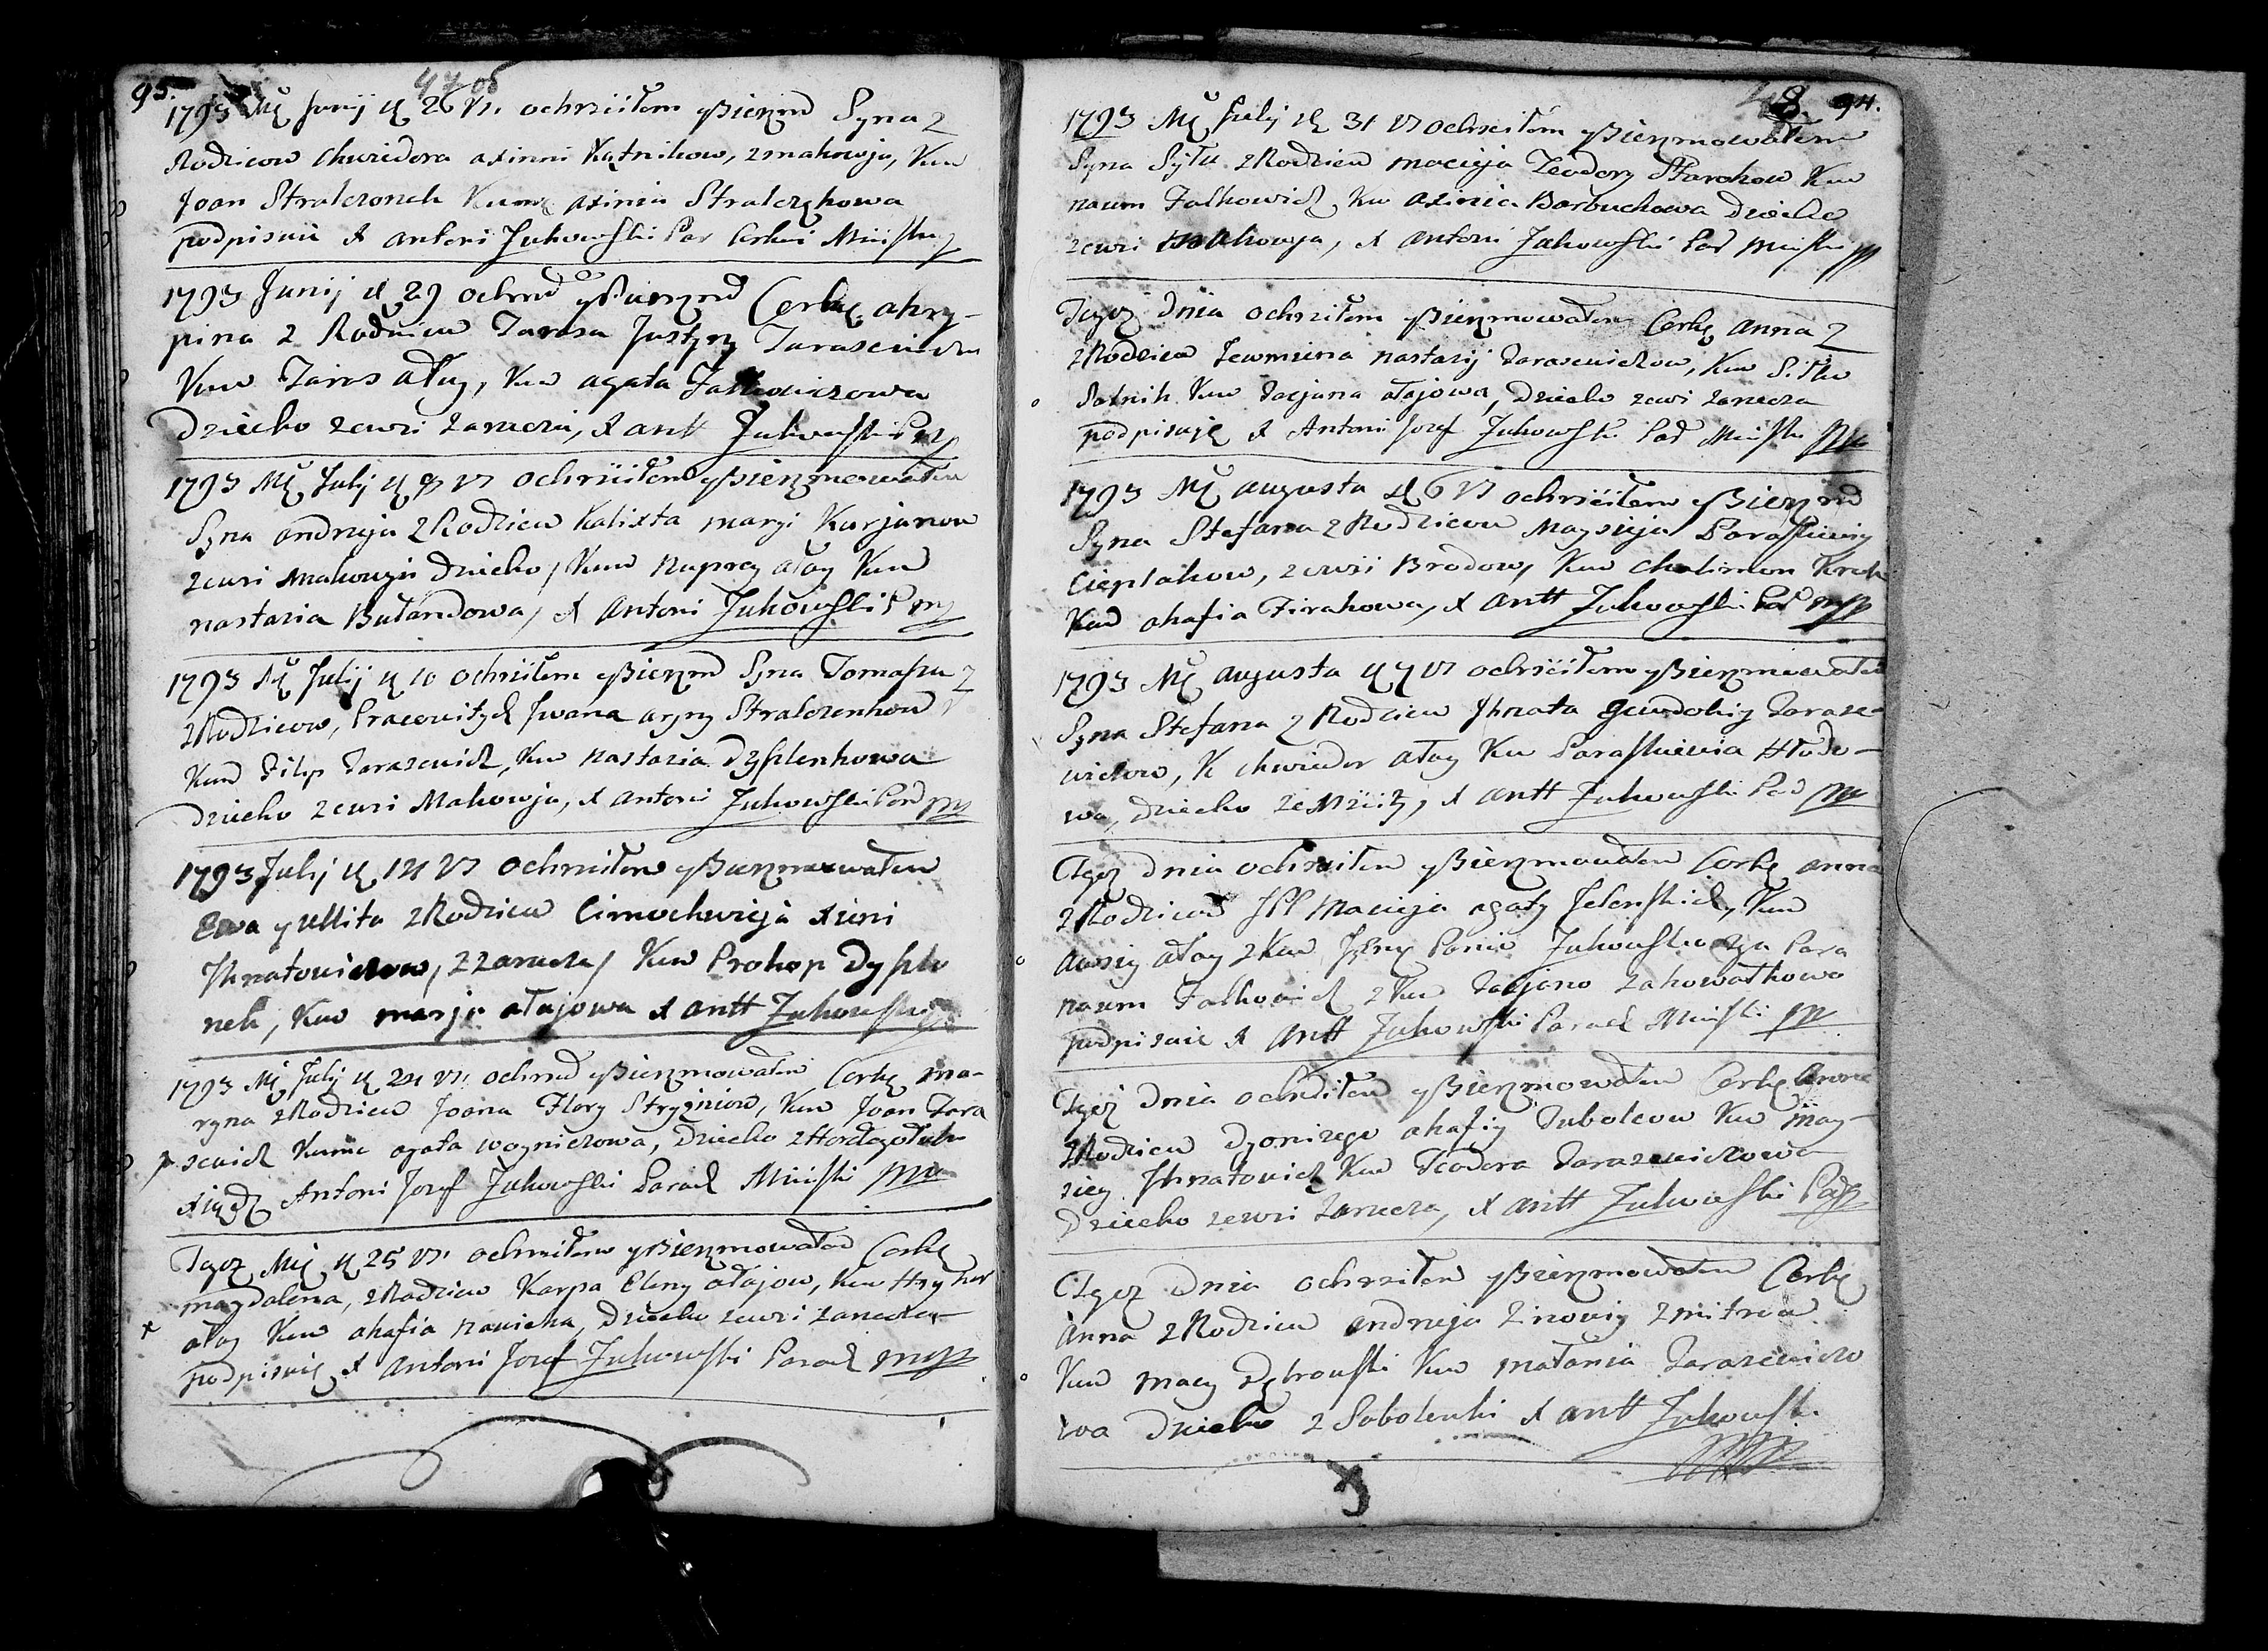 95.
47 об
1793 Mę Junij d 26 Vs. ochrzciłem y Bierzmd Syna z
Rodzicow Chwiedora axinni Kątnikow, z makowja, Kum
Joan Stralczonek Kumę axinia Stralczykowa
podpisuię X Antoni Jukowski Par Cerkwi Mińskiey
1793 Junij d 29 ochrzd y Bierzmd Corkę ahry-
pina z Rodzicow Tarasa Justyny Tarasewiczow
Kum Taras ałay, Kum agata Falkowiczowa
Dziecko zewsi zarzecza, X antt Jukowski P
1793 Mę Julij d Vs ochrzciłem y Bierzmowałem
Syna andrzeja z Rodzicow Kalixta maryi Kurjanow
zewsi makowya Dziecko, Kum Kuprey ałay Kum
nastazia Bułandowa, X Antoni Jukowski P
1793 Mę Julij d 10 ochrzciłem y Bierzmd Syna Tomasza z
z Rodzicow, Pracowitych Jwana aryny Stralczenkow
Kum Filip Tarasewicz, Kum nastazia Dyszlenkowa
Dziecko zewsi Makowja, X antoni Jukowski Par
1793 Julij d 14 Vs ochrzciłem y Bierzmowałem
Ewa y ullita z Rodzicow Cimochwieja Xieni
Jhnatowiczow, z zarzecza, Kum Prokop Dyszle
nek, Kum marja ałajowa X antt Jukowski
1793 Mę Julij d 24 Vs. ochrzd y Bierzmowałem Corkę ma-
ryna z Rodzicow Joana Flory Stryginiow, Kum Joan Tara
sewicz Kuma agata woyniczowa, Dziecko z
Xiądz Antoni Jozef Jukowski Paroch Miński
Tegoż Mię d 25 Vs. ochrzciłem y Bierzmowałem Corkę
magdalena, z Rodzicow Karpa Eleny ałajow, Kum Hryhor
ałay Kum ahafia, Dziecko zewsi zarzecza
podpisuię X Antoni Jozef Jukowski Paroch
48. 94.
1793 Mę Julij d 31 Vs ochrzciłem y Bierzmowałem
Syna Syłu z Rodzicow macieja Teodory Starokow Kum
naum Falkowicz, Ku axinia Borbuchowa Dziecko
zewsi makowja, X antoni Jukowski Par Miński
Tegoż Dnia ochrzciłem y Bierzmowałem Corkę Anna z
z Rodzicow Jewmiena nastazij Tarasewiczow, Kum Siłko
Sotnik Kum Tacjana ałajowa, Dziecko zewsi zarzecza
podpisuję X Antoni Jozef Jukowski Par Miński
1793 Mę augusta d 6 Vs ochrzciłem y Bierzmd
Syna Stefana z Rodzicow Maysieja Paraskiewiy
Cieplakow, zewsi Brodow, Kum Chalimon
Kum ahafia Firahowa, X antt Jukowski Par
1793 Mę augusta d 7 Vs ochrzciłem y Bierzmowałem
Syna Stefana z Rodzicow Jhnata Jewdokiy Tarase-
wiczow, K chwiedor ałay Ku Paraskiewia
wa, Dziecko, X antt Jukowski Par
Tegoż Dnia ochrzciłem y Bierzmowałem Corkę anna
z Rodzicow JPP Macieja agaty Jelenskich, Kum
ausiey ałay z Kum Panią Jukowską Para
naum Falkowicz z Kum Tacjaną zakowatkową
podpisuię X antt Jukowski Paroch Miński
Tegoż Dnia ochrzciłem y Bierzmowałem Corkę Anna
z Rodzicow Dyonizego ahafiy Dubolcow Ku may-
siey Jhnatowicz Kum Teodora Tarasewiczowa
Dziecko zewsi zarzecza, X antt Jukowski Par
Tegoż Dnia ochrzciłem y Bierzmowałem Corkę
Anna z Rodzicow andrzeja Zinowiy zmitrow
Kum macy Dąbrowski Kum małania Tarasewiczo
wa Dziecko z Sobolenki X antt Jukowski